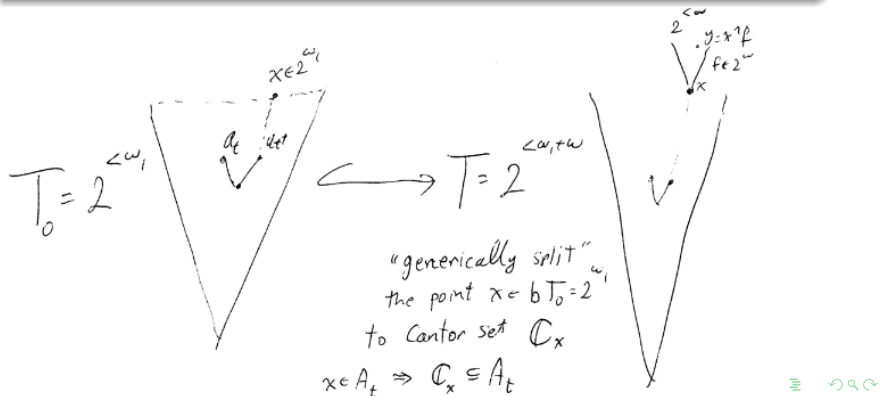 x∈2^ω₁
a_t
T₀ = 2^{<ω₁}
T = 2^{<ω₁+ω}
2^{<ω}
y=x⌢f
f∈2^ω
x
"generically split"
the point x∈bT₀=2^ω₁
to Cantor set ℂ_x
x∈A_t ⇒ ℂ_x ⊆ A_t